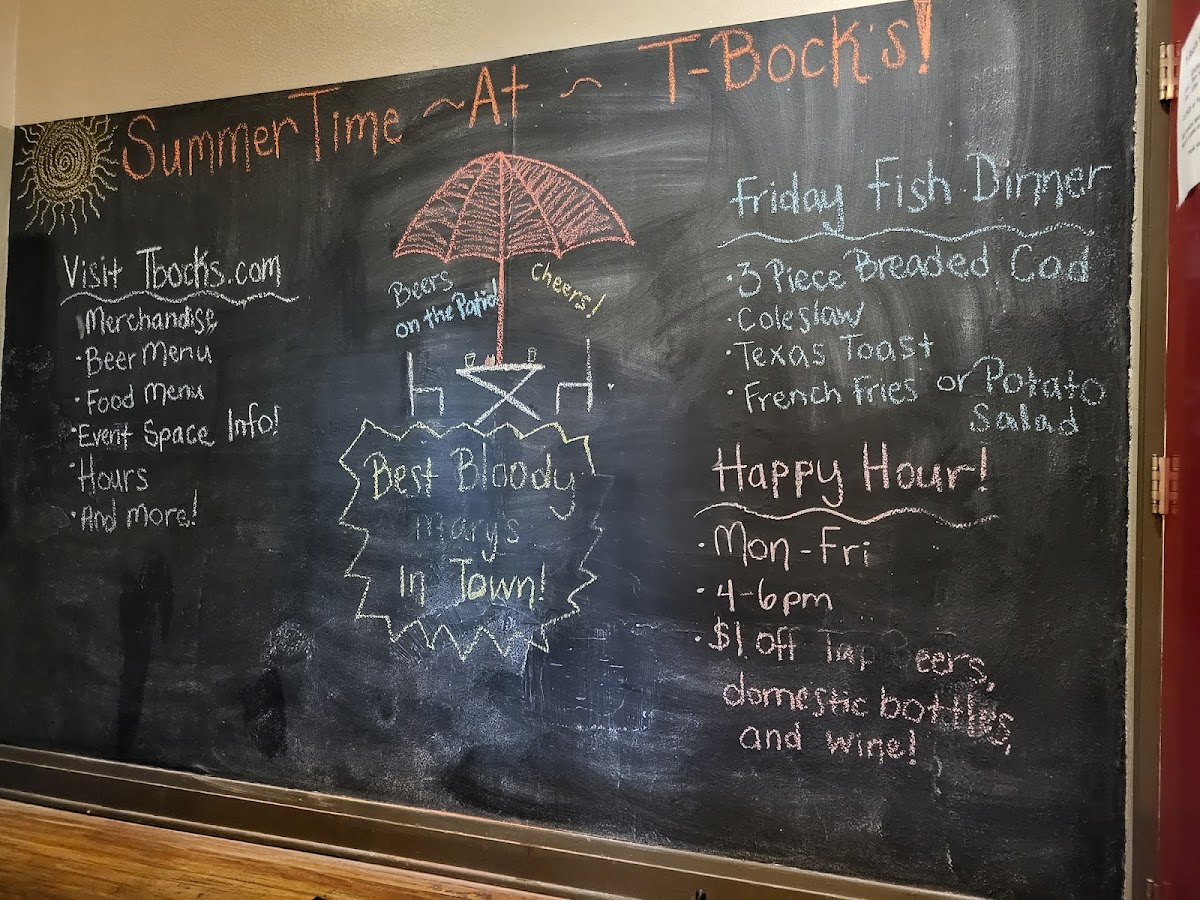 SummerTime ~ At ~ T-Bock's!
Visit Tbocks.com
Merchandise
• Beer Menu
• Food Menu
• Event Space Info!
• Hours
• And more!
Beers
on the Patio!
Cheers!
Best Bloody
Mary's
In Town!
Friday Fish Dinner
• 3 Piece Breaded Cod
• Coleslaw
• Texas Toast
• French Fries or Potato
Salad
Happy Hour!
• Mon-Fri
• 4-6pm
• $1 off Tap Beers,
domestic bottles,
and wine!